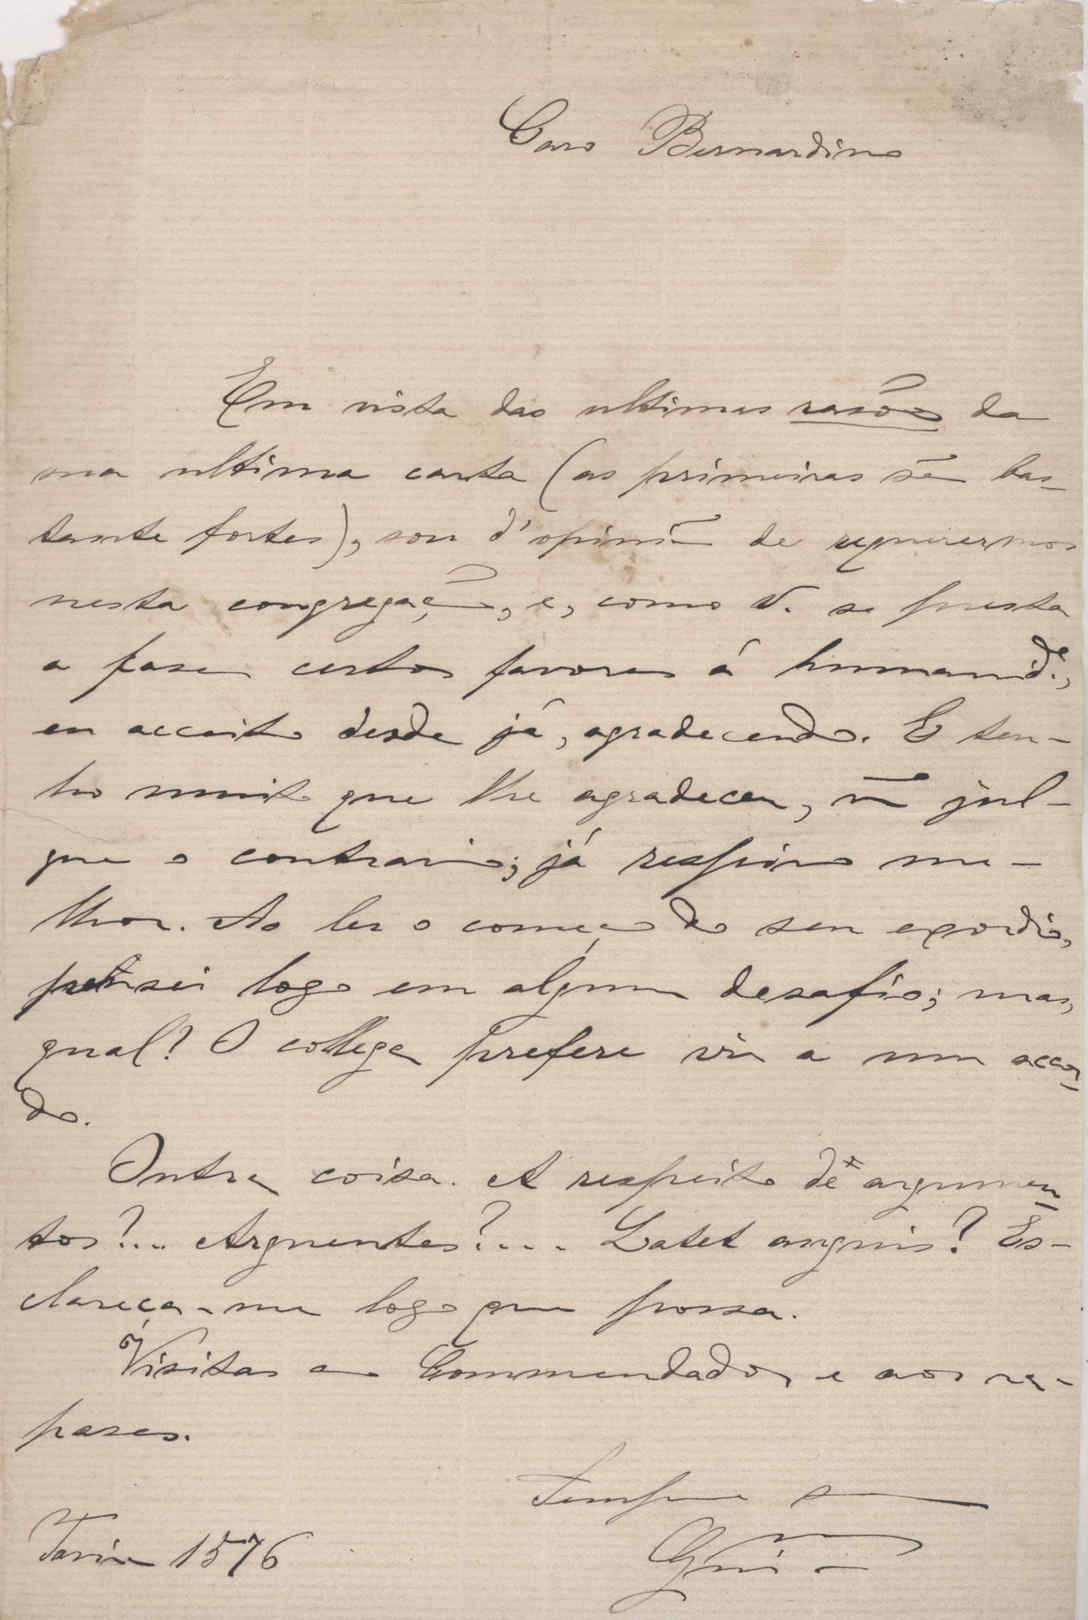 Caro Bernardino
Em vista das ultimas rasões da
sua ultima carta (as primeiras sã bas-
tante fortes), sou d'opiniã de requerermos
nesta congregação, e, como V. se presta
a faser certos favores á humanid.e,
eu acceito desde já, agradecendo. E ten-
ho muito que lhe agradecer, nã jul-
gue o contrario; já respiro me-
lhor. Ao ler o começo do seu exordio,
pensei logo em algum desafio; mas,
qual? O collega prefere vir a um accor-
do.
Outra coisa. A respeito de argumen-
tos?... Arguentes?.... Latet anguis? Es-
clareça-me logo que possa.
Visitas ao Commendador e aos ra-
pases.
Sempre seu
1576